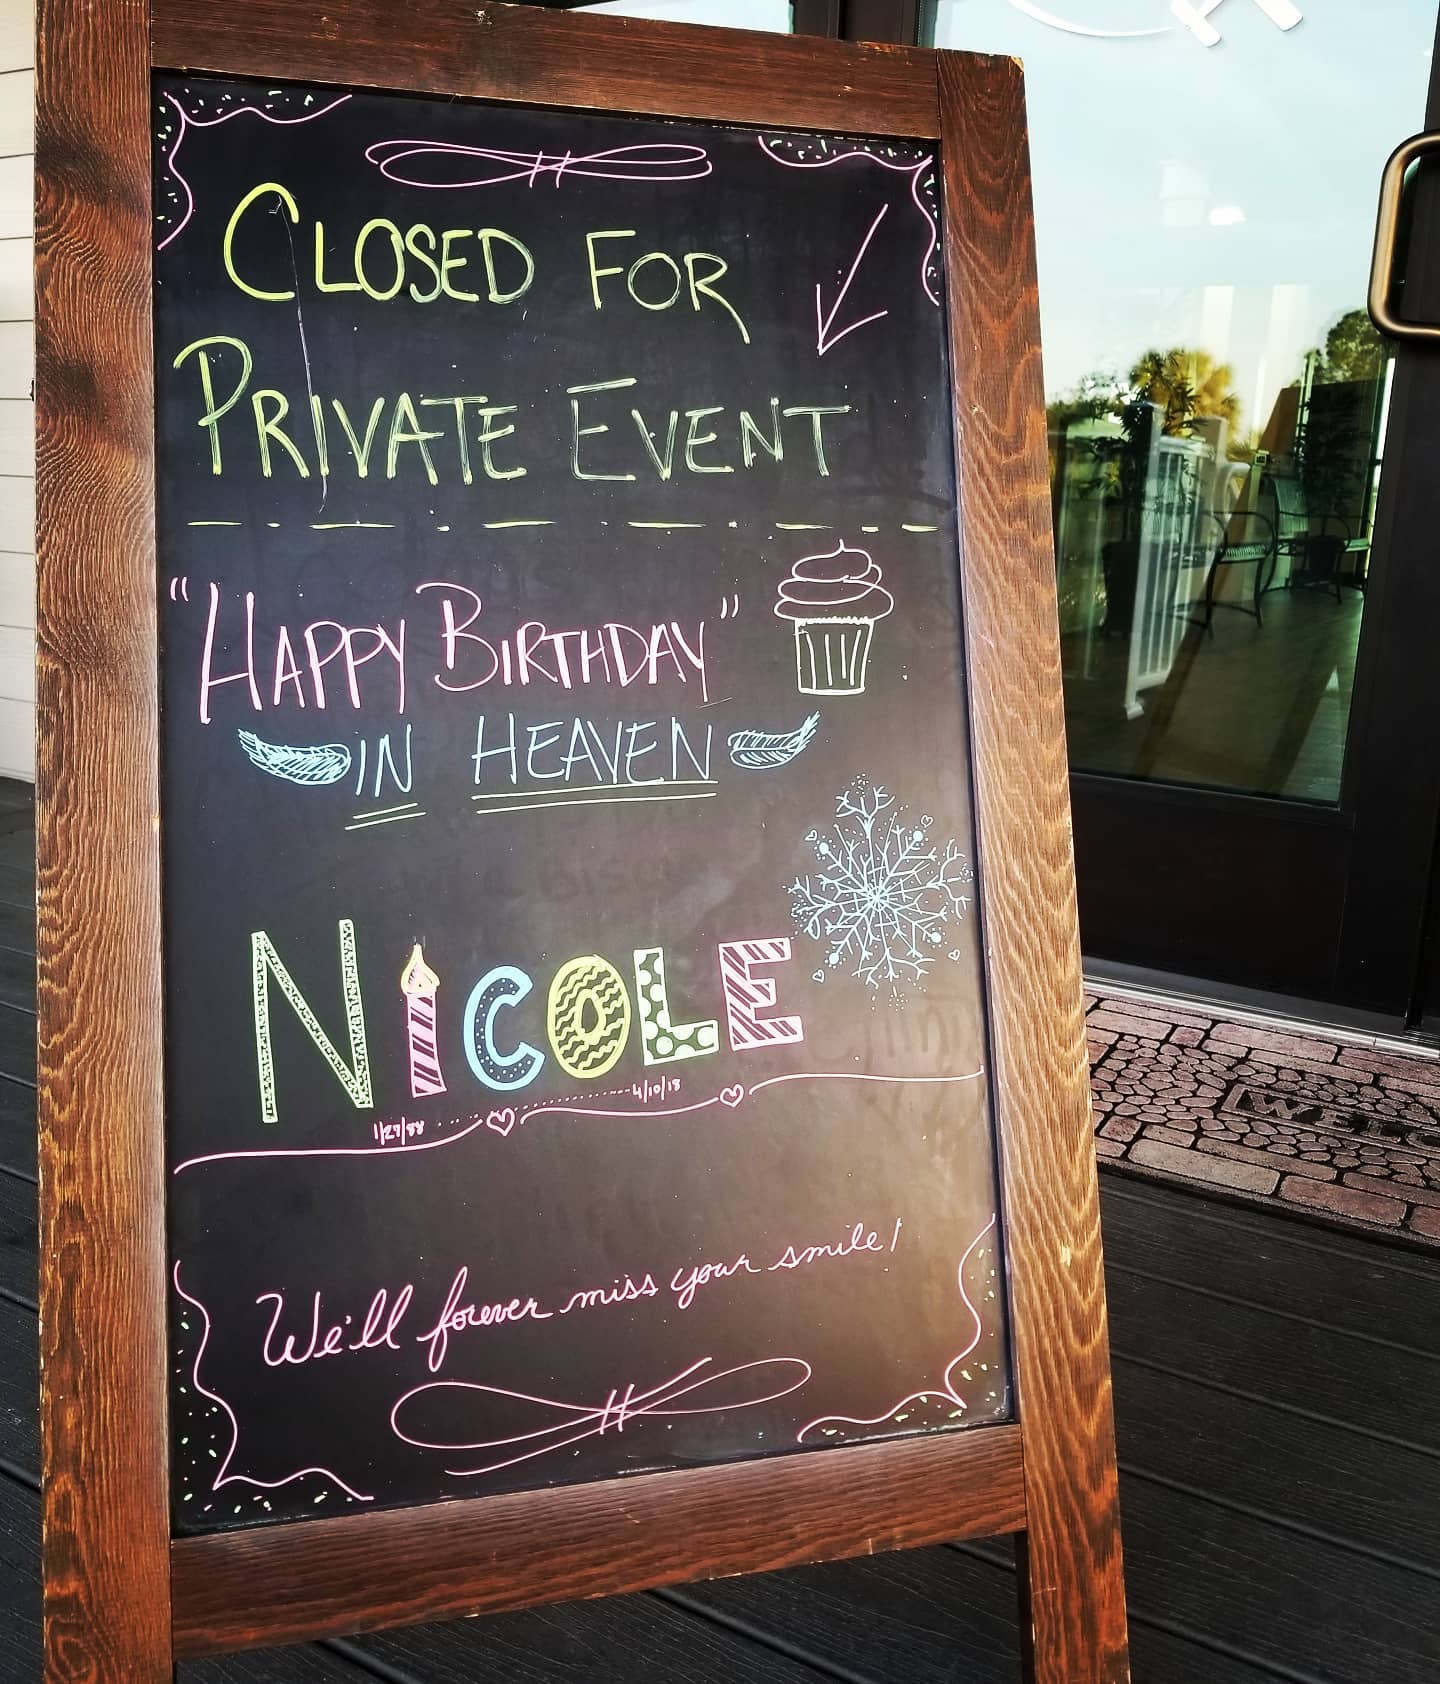 CLOSED FOR
PRIVATE EVENT
"HAPPY BIRTHDAY"
IN HEAVEN
NiCOLE
1/27/88 ........ 4/10/18
We'll forever miss your smile!